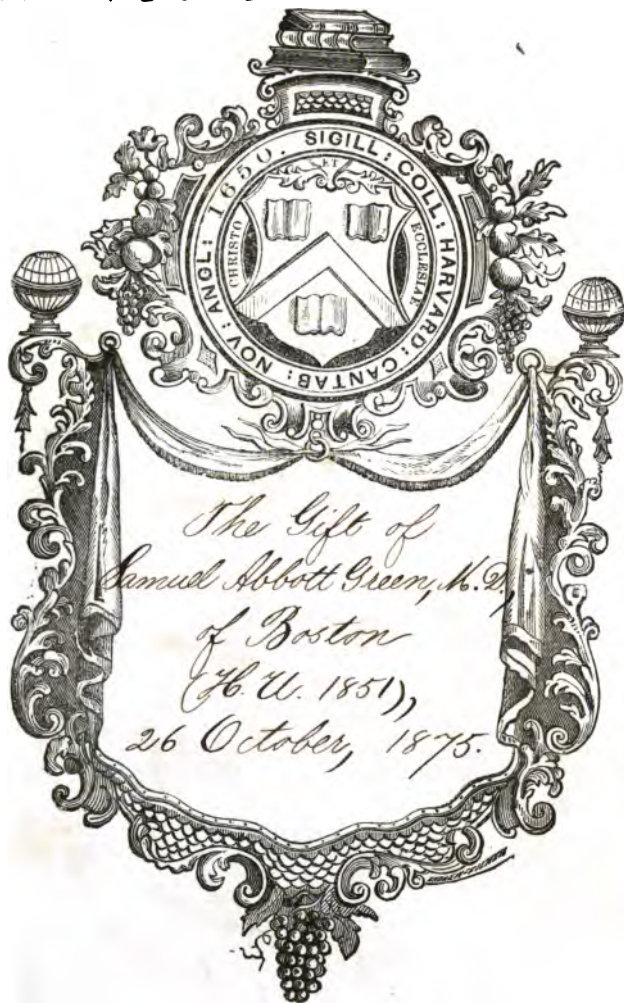 SIGILL: COLL: HARVARD: CANTAB: NOV: ANGL: 1650.
CHRISTO ET ECCLESIAE
The Gift of
Samuel Abbott Green, M.D.,
of Boston
(H. U. 1851),
26 October, 1875.